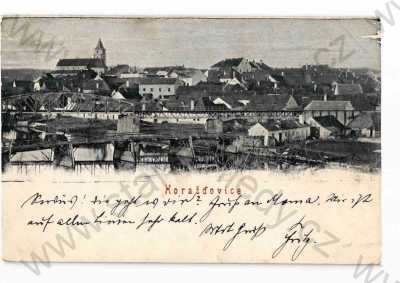 Horažďovice
Servus! Wie geht es dir? Gruß an Mama. Mir ist
auf allen Linien sehr kalt. Mit Gruß
Fritz.